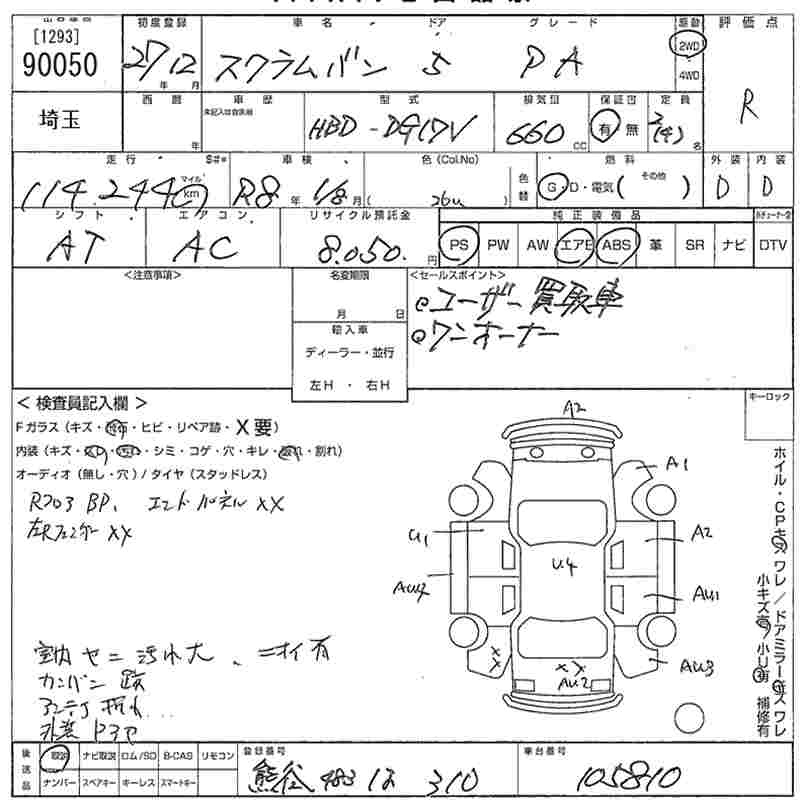 [1293]
90050
初度登録
27年12月
車名 ドア グレード
スクラムバン 5 PA
駆動
2WD
4WD
評価点
R
埼玉
西暦
年
車歴
未記入は自家用
型式
HBD-DG17V
排気量
660 CC
保証書
有 無
定員
2(4)名
走行 S#*
114,244 マイル km
車検
R8年1/8月
色(Col.No)
( 26u )
色替
燃料
G・D・電気( その他 )
外装
D
内装
D
シフト
AT
エアコン
AC
リサイクル預託金
8,050円
純正装備品
PS PW AW エアB ABS 革 SR ナビ DTV
<注意事項>
名変期限
月 日
輸入車
ディーラー・並行
左H・右H
<セールスポイント>
ユーザー買取車
ワンオーナー
キーロック
<検査員記入欄>
Fガラス(キズ・補修・ヒビ・リペア跡・X要)
内装(キズ・汚れ・シミ・コゲ・穴・キレ・割れ)
オーディオ(無し・穴)/タイヤ(スタッドレス)
BP、エンドパネルXX
XX
A2
A1
U1
A2
U4
AU2
AU1
XX
XX
AU2
AU3
ホイル・CPキズワレ/ドアミラーキズワレ
小キズ有 小U有 補修有
室内ヤニ汚れ大、ニオイ有
カンバン跡
後送品
取説 ナビ取説 ロム/SD B-CAS リモコン
ナンバー スペアキー キーレス スマートキー
登録番号
熊谷 483 は 310
車台番号
105810